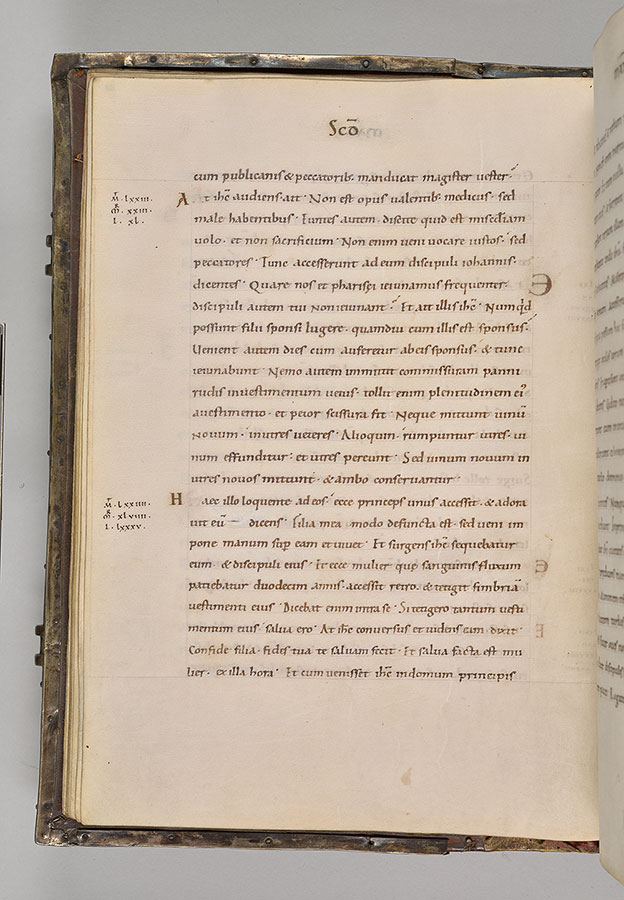 Scd̄
cum publicanis & peccatorib; manducat magister vester·
m̄· lxxiii·
m̄· xxiii·
l· xl·
At ihc̄ audiens· ait· Non est opus valentib; medicus· sed
male habentibus· Euntes autem· discite quid est misc̄diam
uolo· et non sacrificium· Non enim veni uocare iustos· sed
peccatores· Tunc accesserunt ad eum discipuli iohannis·
dicentes· Quare nos et pharisęi ieiunamus frequenter·
discipuli autem tui non ieiunant· Et ait illis ihc̄· Numqd̄
possunt filii sponsi lugere· quamdiu cum illis est sponsus·
Uenient autem dies cum auferetur ab eis sponsus· & tunc
ieiunabunt· Nemo autem immittit commissuram panni
rudis in uestimentum uetus· tollit enim plenitudinem ei'
a uestimento· et peior scissura fit· Neque mittunt uinū
nouum· in utres veteres· Alioquin· rumpuntur utres· ui
num effunditur· et utres pereunt· Sed uinum nouum in
utres nouos mittunt· & ambo conseruantur·
m̄· lxxiiii·
m̄· xlviiii·
l· lxxxv·
Haec illo loquente ad eos· ecce princeps unus accessit· & adora
uit eū dicens· Filia mea modo defuncta est· sed veni im
pone manum sup̄ eam et uiuet· Et surgens ihc̄ sequebatur
eum· & discipuli eius· Et ecce mulier quę sanguinis fluxum
patiebatur duodecim annis· accessit retro· & tetigit fimbriā
vestimenti eius· Dicebat enim intra se· Si tetigero tantum uesti
mentum eius· salua ero· At ihc̄ conuersus et uidens eam· dixit·
Confide filia· fides tua te saluam fecit· Et salua facta est mu
lier· ex illa hora· Et cum uenisset ihc̄ in domum principis